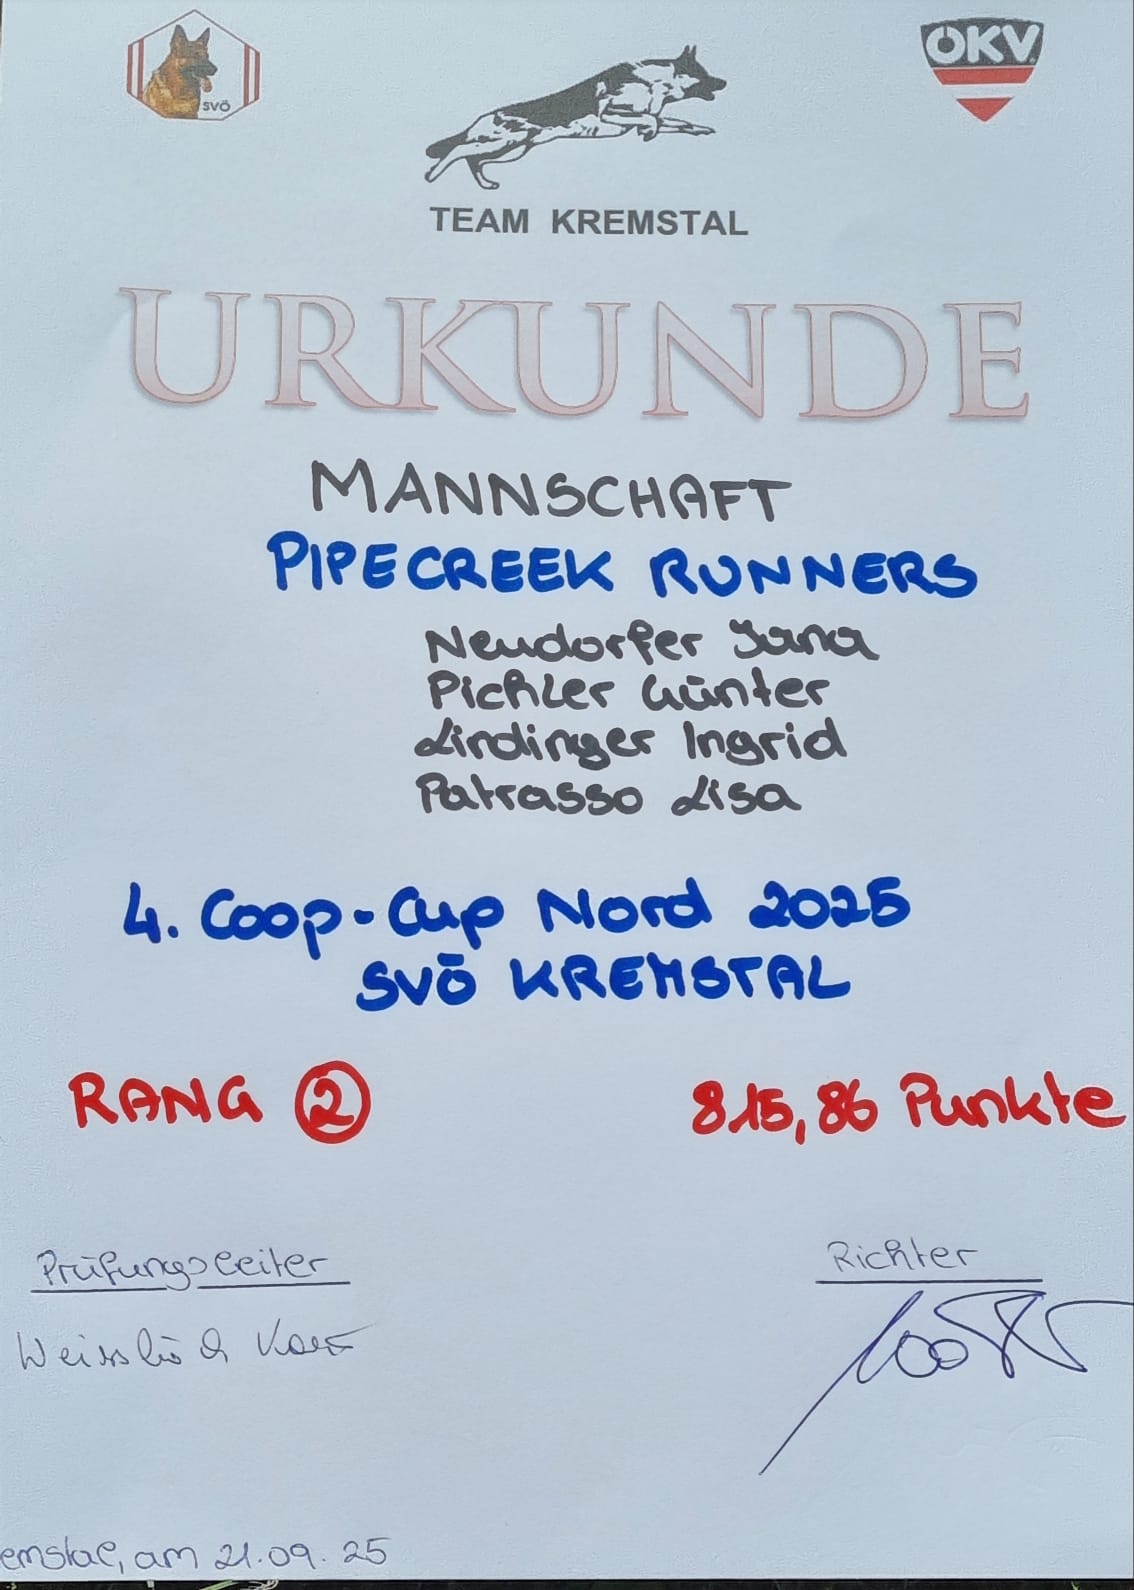 SVÖ
ÖKV
TEAM KREMSTAL
URKUNDE
MANNSCHAFT
PIPECREEK RUNNERS
Neudorfer Jana
Pichler Günter
Lindinger Ingrid
Patrasso Lisa
4. Coop-Cup Nord 2025
SVÖ KREMSTAL
RANG 2 815,86 Punkte
Prüfungsleiter Richter
emstal, am 21.09.25